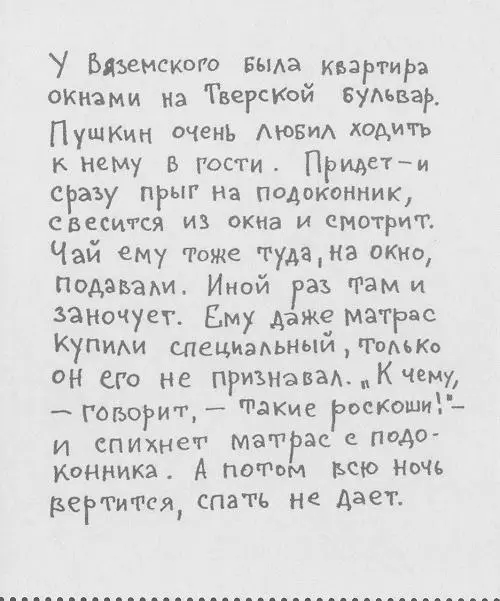 У Вяземского была квартира
окнами на Тверской бульвар.
Пушкин очень любил ходить
к нему в гости. Придет – и
сразу прыг на подоконник,
свесится из окна и смотрит.
Чай ему тоже туда, на окно,
подавали. Иной раз там и
заночует. Ему даже матрас
купили специальный, только
он его не признавал. „К чему,
– говорит, – такие роскоши!" –
и спихнет матрас с подо-
конника. А потом всю ночь
вертится, спать не дает.